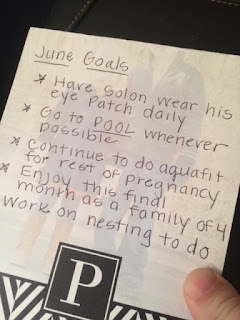 June Goals
* Have Solon wear his
eye patch daily
* Go to POOL whenever
possible
* Continue to do aquafit
for rest of pregnancy
* Enjoy this final
month as a family of 4
work on nesting to do
P